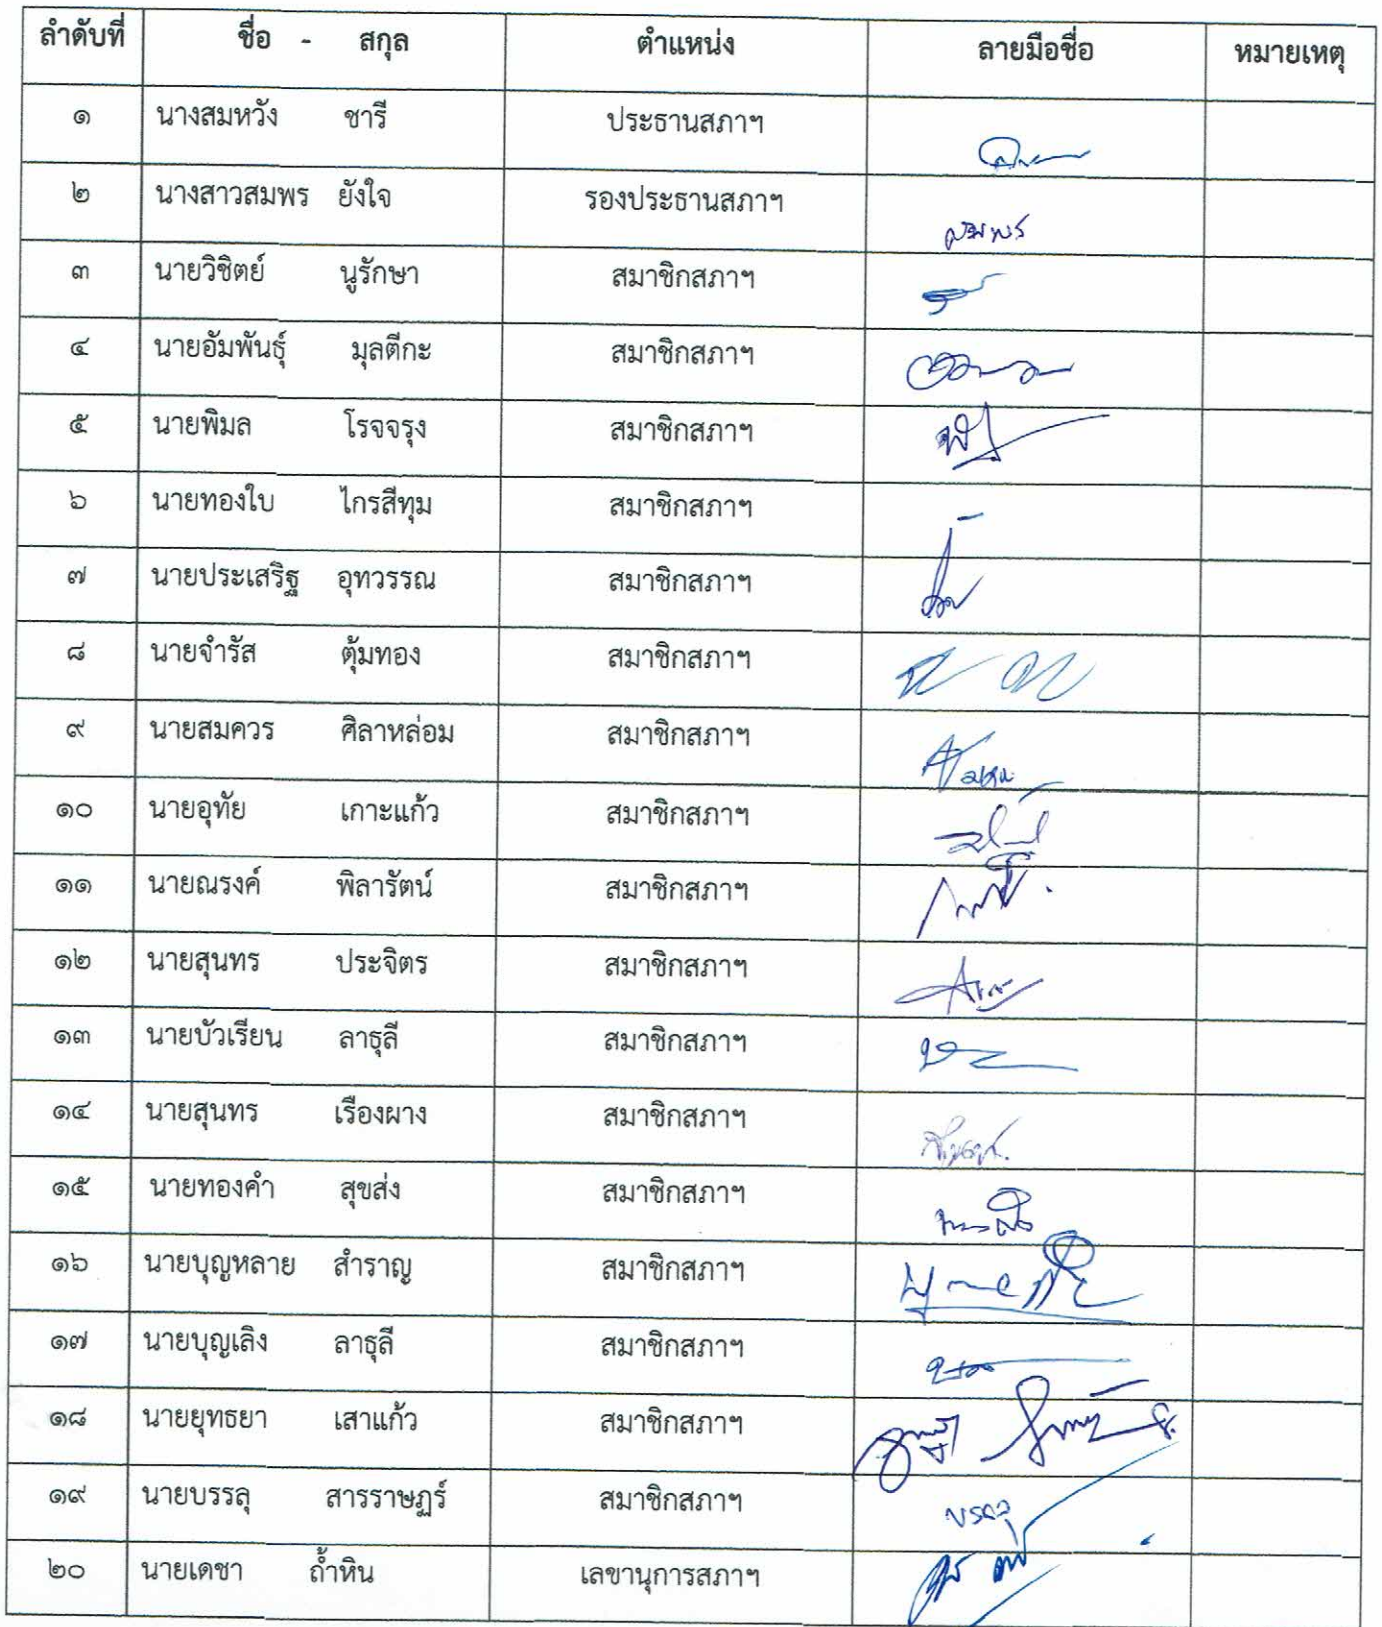 ลำดับที่ ชื่อ - สกุล ตำแหน่ง ลายมือชื่อ หมายเหตุ
๑ นางสมหวัง ชารี ประธานสภาฯ
๒ นางสาวสมพร ยังใจ รองประธานสภาฯ สมพร
๓ นายวิชิตย์ นูรักษา สมาชิกสภาฯ
๔ นายอัมพันธุ์ มุลตีกะ สมาชิกสภาฯ
๕ นายพิมล โรจจรุง สมาชิกสภาฯ
๖ นายทองใบ ไกรสีทุม สมาชิกสภาฯ
๗ นายประเสริฐ อุทวรรณ สมาชิกสภาฯ
๘ นายจำรัส ตุ้มทอง สมาชิกสภาฯ
๙ นายสมควร ศิลาหล่อม สมาชิกสภาฯ
๑๐ นายอุทัย เกาะแก้ว สมาชิกสภาฯ
๑๑ นายณรงค์ พิลารัตน์ สมาชิกสภาฯ
๑๒ นายสุนทร ประจิตร สมาชิกสภาฯ
๑๓ นายบัวเรียน ลาธุลี สมาชิกสภาฯ
๑๔ นายสุนทร เรืองผาง สมาชิกสภาฯ
๑๕ นายทองคำ สุขส่ง สมาชิกสภาฯ
๑๖ นายบุญหลาย สำราญ สมาชิกสภาฯ
๑๗ นายบุญเลิง ลาธุลี สมาชิกสภาฯ
๑๘ นายยุทธยา เสาแก้ว สมาชิกสภาฯ
๑๙ นายบรรลุ สารราษฏร์ สมาชิกสภาฯ บรรลุ
๒๐ นายเดชา ถ้ำหิน เลขานุการสภาฯ